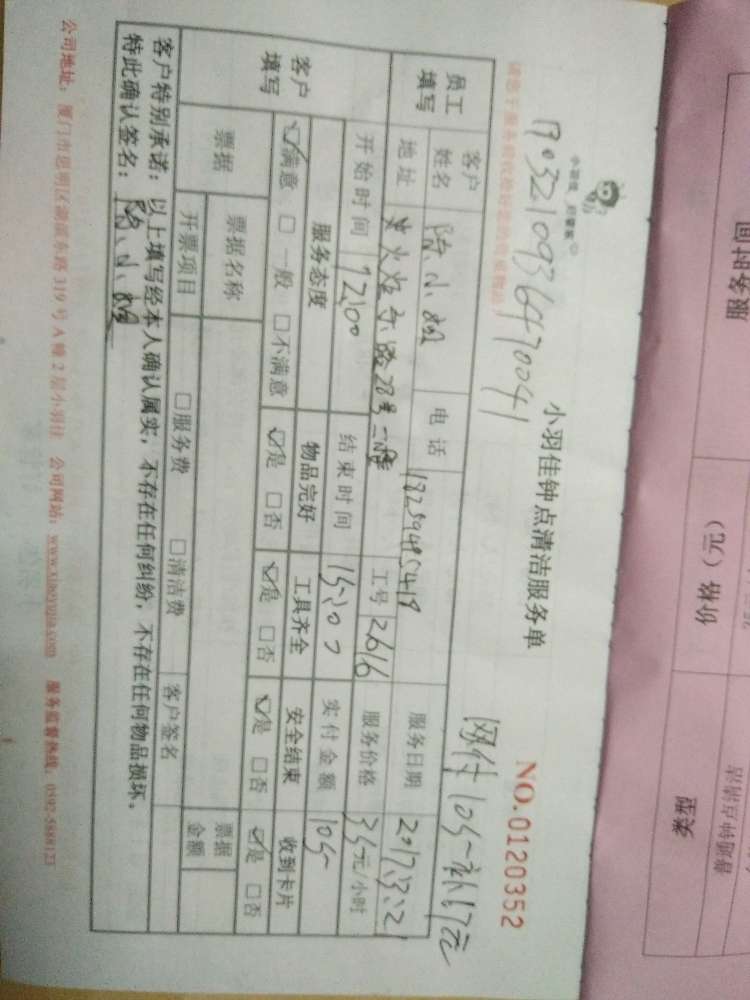 小羽佳 好管家
小羽佳钟点清洁服务单
NO.0120352
1703210936470041
网付105元补67元
员工填写
客户姓名 陈小姐 电话 18259495419 服务日期 2017.3.21
地址 火炬东路28号 工号 2616 服务价格 35元/小时
开始时间 12:00 结束时间 15:00 实付金额 105
客户填写
服务态度 物品完好 工具齐全 安全结束 收到卡片
☑满意 □一般 □不满意 ☑是 □否 ☑是 □否 ☑是 □否 ☑是 □否
票据 票据名称 票据金额
开票项目 □服务费 □清洁费 客户签名
客户特别承诺：以上填写经本人确认属实，不存在任何纠纷，不存在任何物品损坏。
特此确认签名：陈小姐
公司地址：厦门市思明区湖滨东路319号A幢2层小羽佳 公司网站：www.xiaoyujia.com 服务监督热线：0592-5888123
服务时间
价格（元）
类型